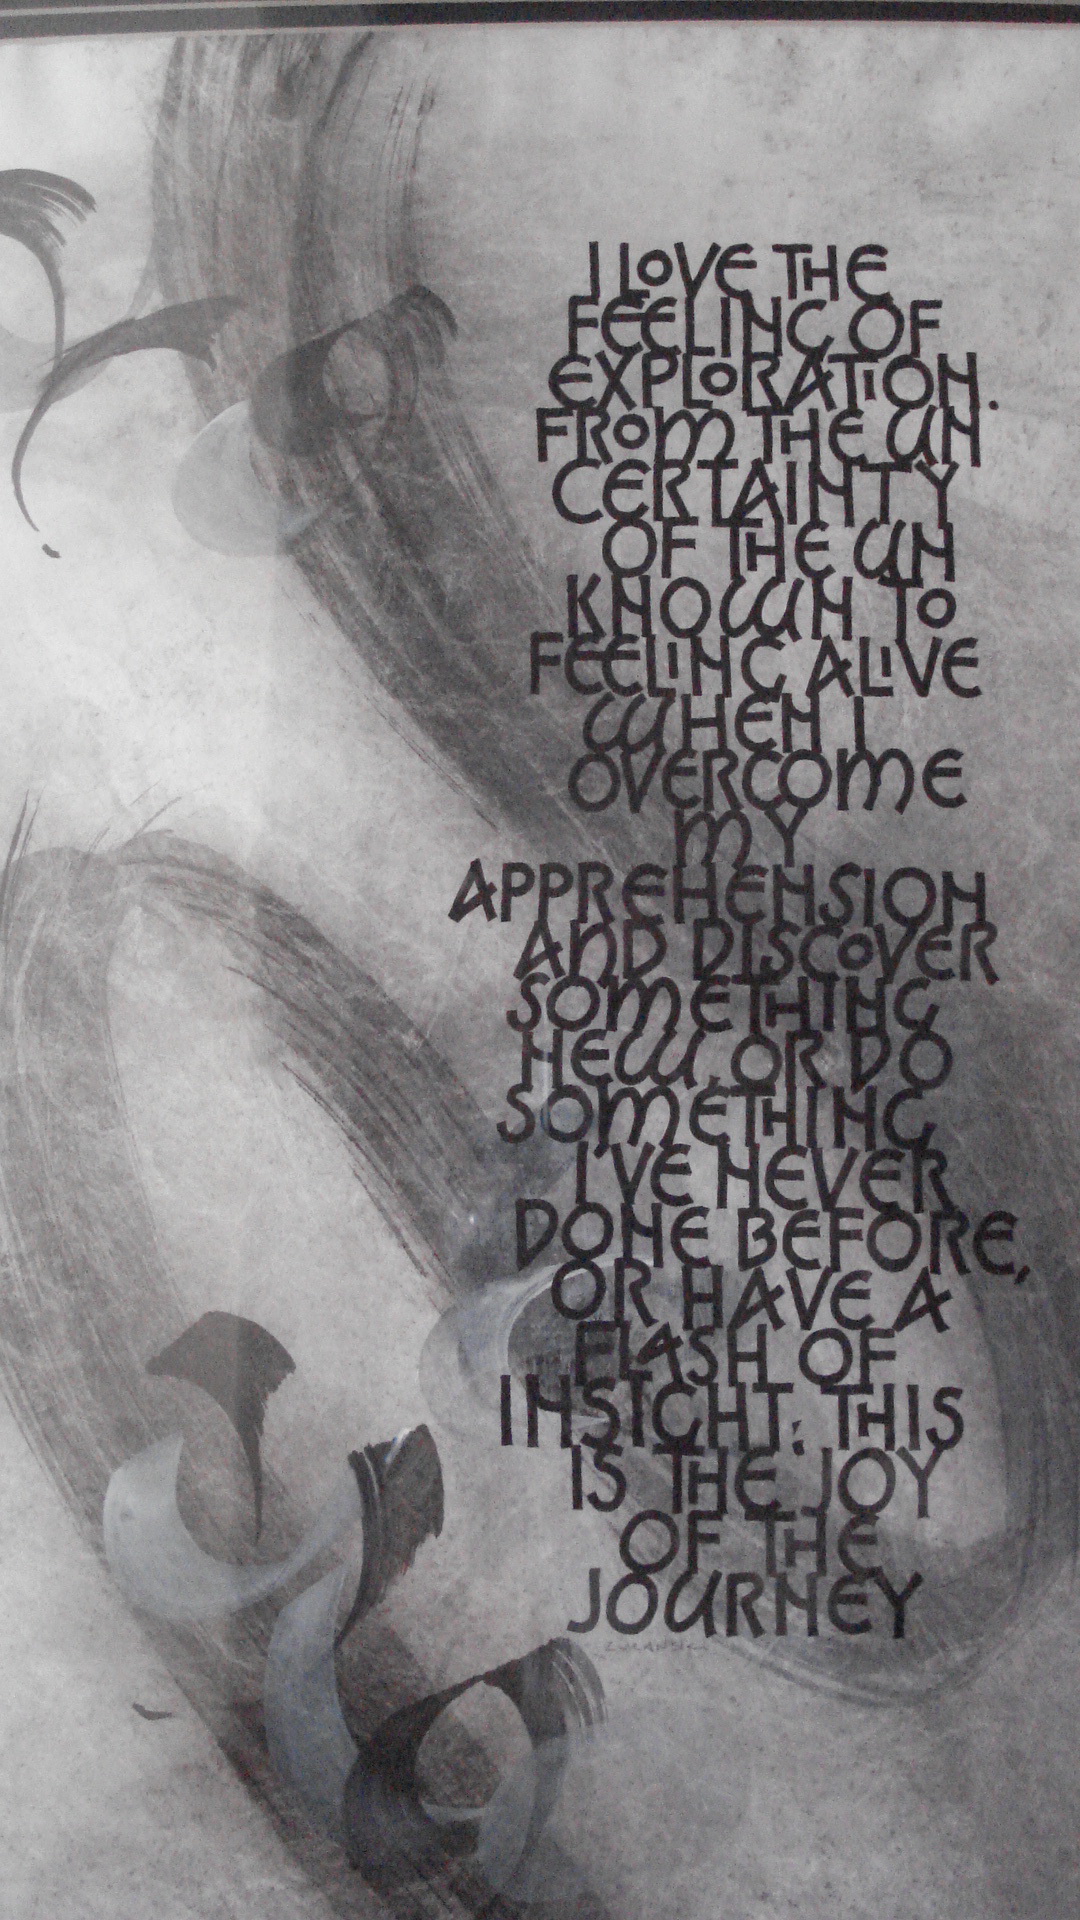 I LOVE THE
FEELING OF
EXPLORATION.
FROM THE UN
CERTAINTY
OF THE UN
KNOWN TO
FEELING ALIVE
WHEN I
OVERCOME
MY
APPREHENSION
AND DISCOVER
SOMETHING
NEW, OR DO
SOMETHING
I'VE NEVER
DONE BEFORE,
OR HAVE A
FLASH OF
INSIGHT; THIS
IS THE JOY
OF THE
JOURNEY